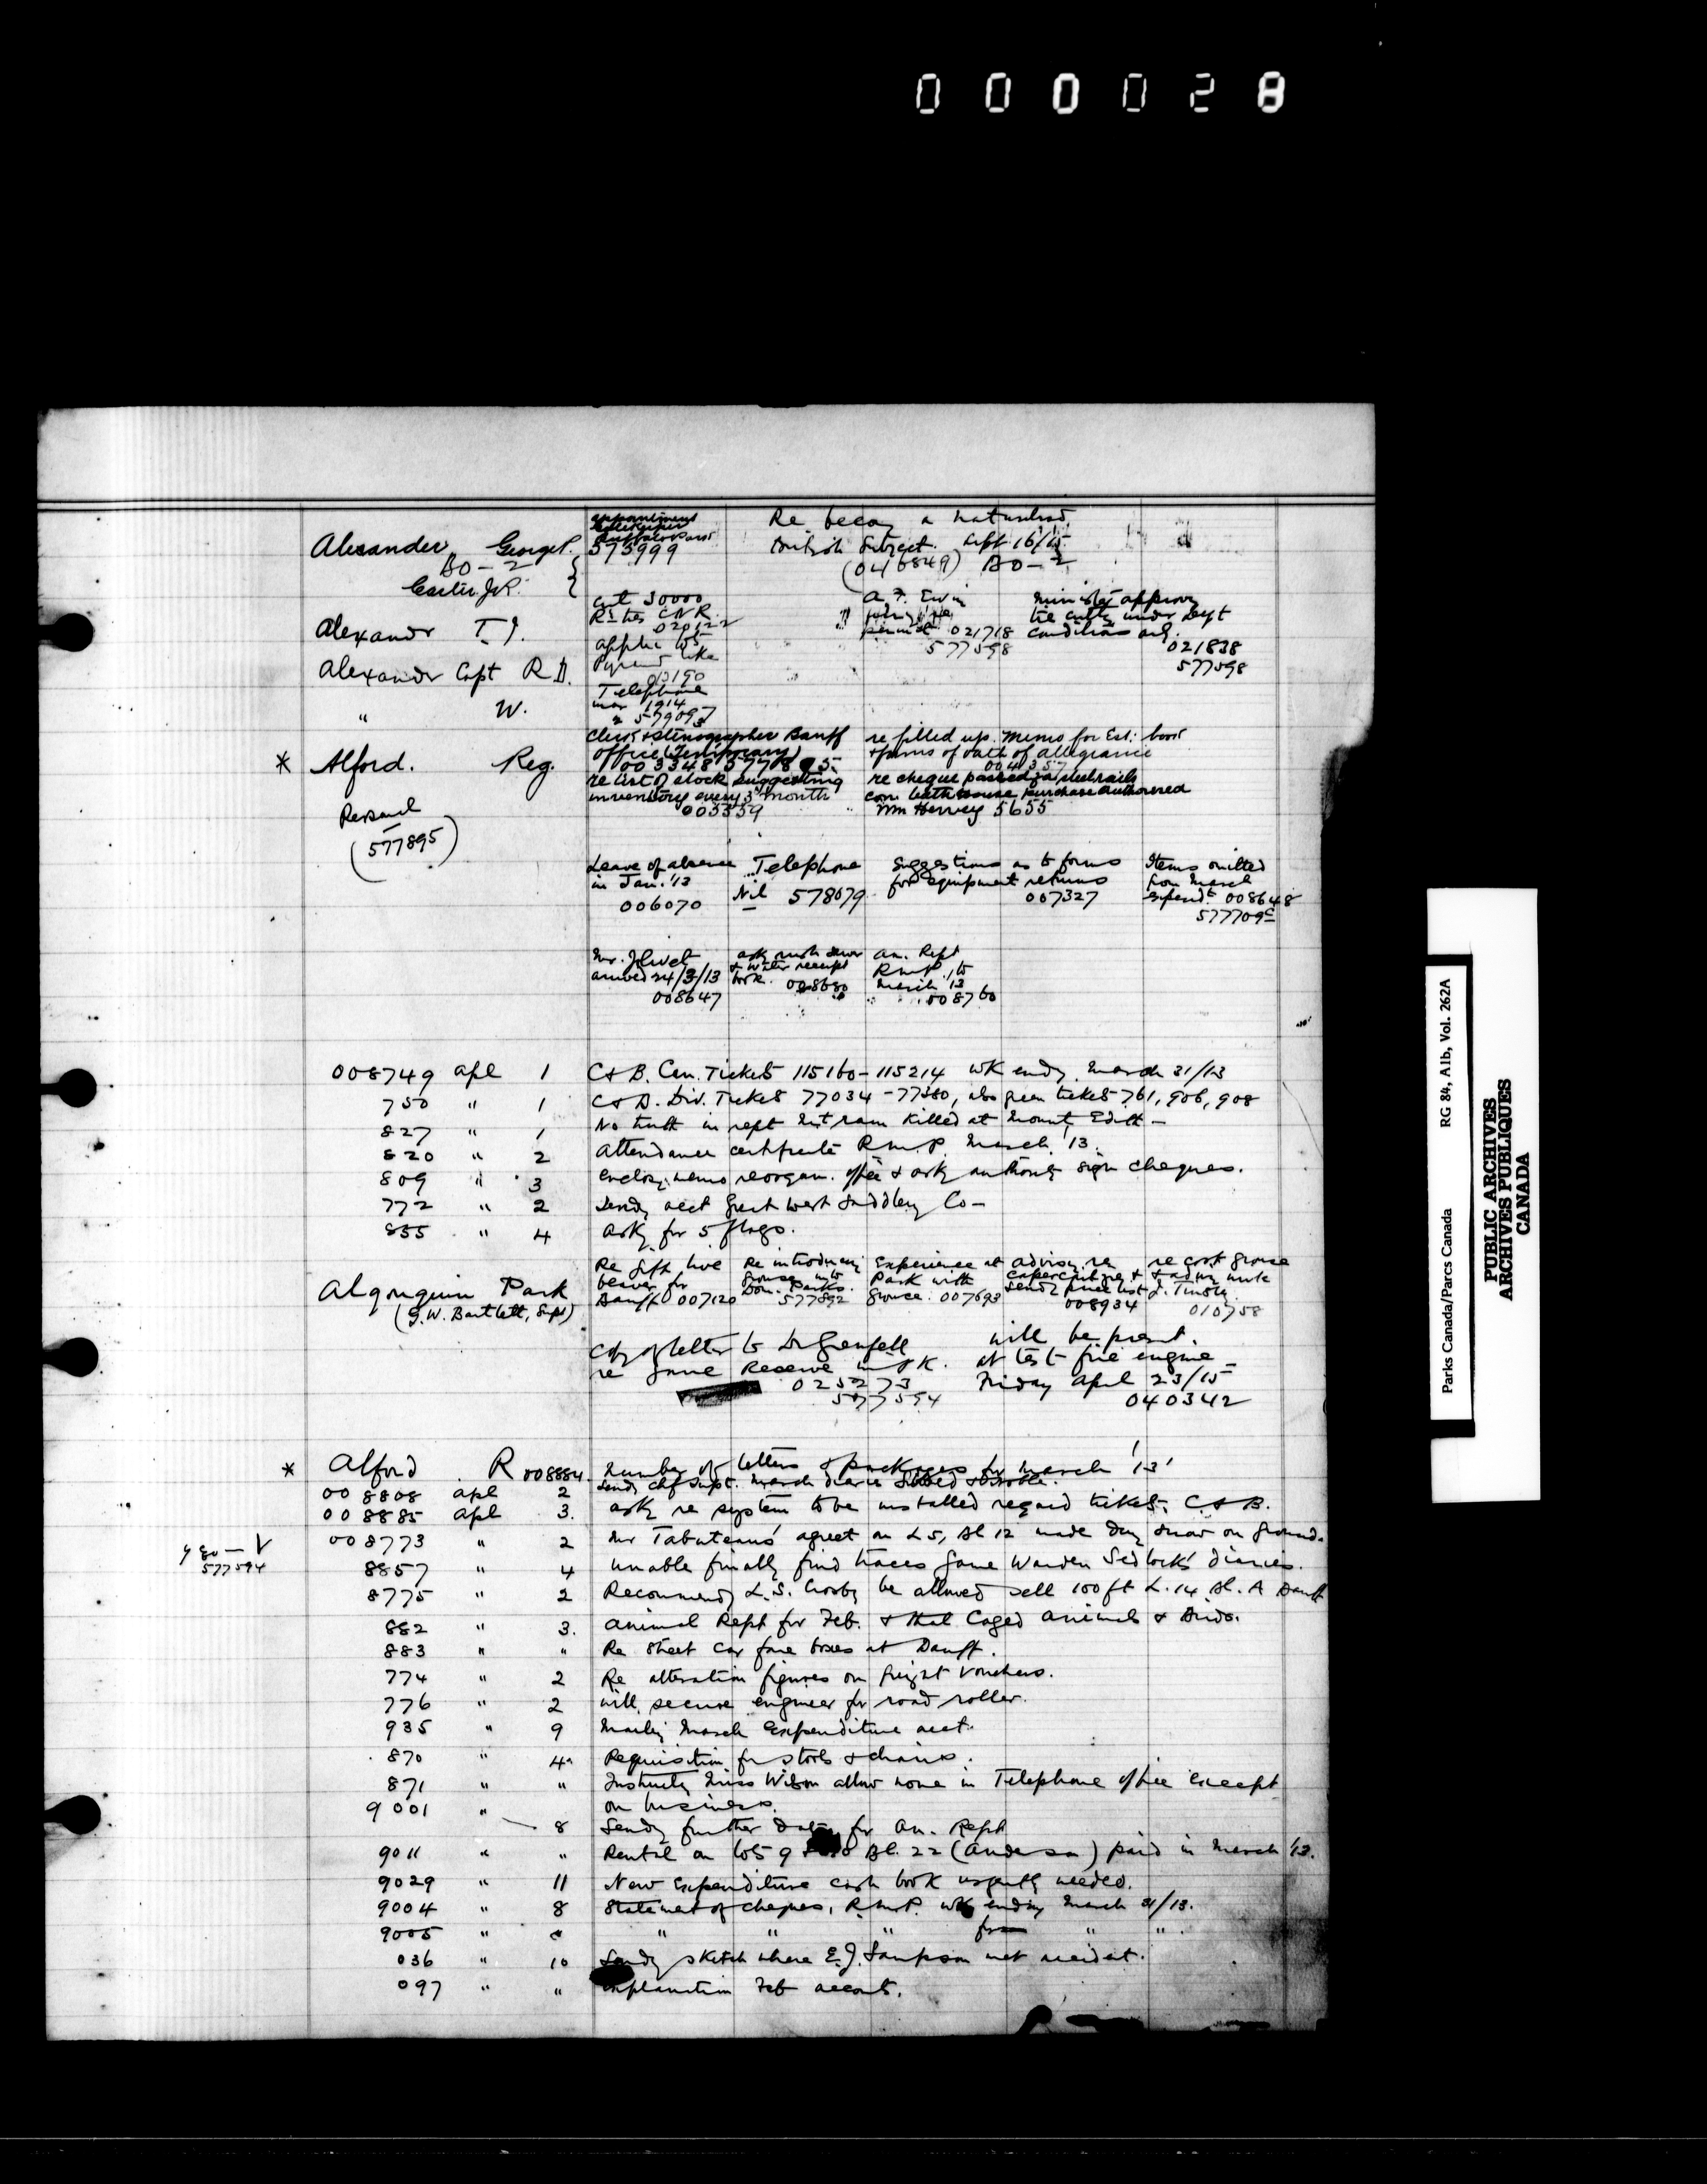 000028
Alexander George P.
BO-2
Carter J.R.
appointment
Buffalo Park
573999
Re becoming a naturalized
British Subject. Sept 16/15
(046849) BO-2
Alexander T. J.
cut 30000
R. ties CNR
020122
A. F. Ewin
permit 021718
577598
Minister approves
tie cutting under Dept
conditions only.
021838
577598
Alexander Capt R. D.
applic lots
Pyramid Lake
013190
" W.
Telephone
mar 1914
579097
* Alford. Reg.
Clerk & Stenographer Banff
Office (Temporary)
003348 577895
re filled up memo for Est. book
& forms of oath of allegiance
004357
re list of stock suggesting
inventory every 3 month
005559
re cheque passed for steel rails
con. bath house purchase authorized
Wm Hervey 5655
Personal
(577895)
Leave of absence
in Jan. '13
006070
Telephone
Nil 578079
Suggestions as to forms
for equipment returns
007327
Items omitted
from March
Expend. 008648
577709
arrived 24/3/13
008647
ask rush sewer
& water receipt
book. 008680
An. Rept
R.M.P. to
March '13
008760
008749 Apl 1 C & B. Cen. Tickets 115160-115214 wk endg. March 31/13
750 " 1 C & B. Div. Tickets 77034-77380, also green tickets 761, 906, 908
827 " 1 No truth in rept Mt ram killed at Mount Edith -
820 " 2 Attendance certificate R.M.P. March '13.
809 " 3 Enclosg. memo reorgan. office & askg authority sign cheques.
772 " 2 Sendg acct Great West Saddlery Co -
855 " 4 Askg for 5 flags.
Algonquin Park
(G.W. Bartlett, Supt)
Re gift live
beaver for
Banff 007120
Re introducing
Grouse into
Dom. Parks.
577892
Experience at
Park with
Grouse. 007693
advisg re
capercailzie &
sendg price list
008934
re cost grouse
010758
Copy of letter to Dr Grenfell
re Game Reserve in
025273
577594
will be present.
at test fire engine
Friday April 23/15
040342
* Alford R 008884. Number of letters & packages for March '13'
008808 Apl 2 Sendg Chf Supt. March diaries Sibbald &
008885 Apl 3. askg re system to be installed regard tickets. C & B.
008773 " 2 Mr Tabuteau's agreet on L 5, Bl 12 made Dmg snow on ground.
577594
8857 " 4 Unable finally find traces Game Warden Sedlock's diaries.
8775 " 2 Recommendg L.S. Crosby be allowed sell 100 ft L. 14 Bl. A Banff
882 " 3. Animal Rept for Feb. & that Caged animals & Birds.
883 " " Re street car fare boxes at Banff.
774 " 2 Re alteration figures on freight vouchers.
776 " 2 will secure engineer for road roller.
935 " 9 Mailg March Expenditure acct.
870 " 4 Requisition for stools & chairs.
871 " " Instructg Miss Wilson allow none in Telephone office except
on business.
9001 " 8 Sendg further data for An. Rept
9011 " " Rental on lots 9 & 10 Bl. 22 (Anderson) paid in March '13.
9029 " 11 New Expenditure cash book urgently needed.
9004 " 8 Statement of cheques, R.M.P. wk ending March 31/13.
9005 " " " " for " "
036 " 10 Sendg sketch where E.J. Sampson met accident.
097 " " Explanation Feb accounts.
Parks Canada/Parcs Canada RG 84, A1b, Vol. 262A
PUBLIC ARCHIVES
ARCHIVES PUBLIQUES
CANADA